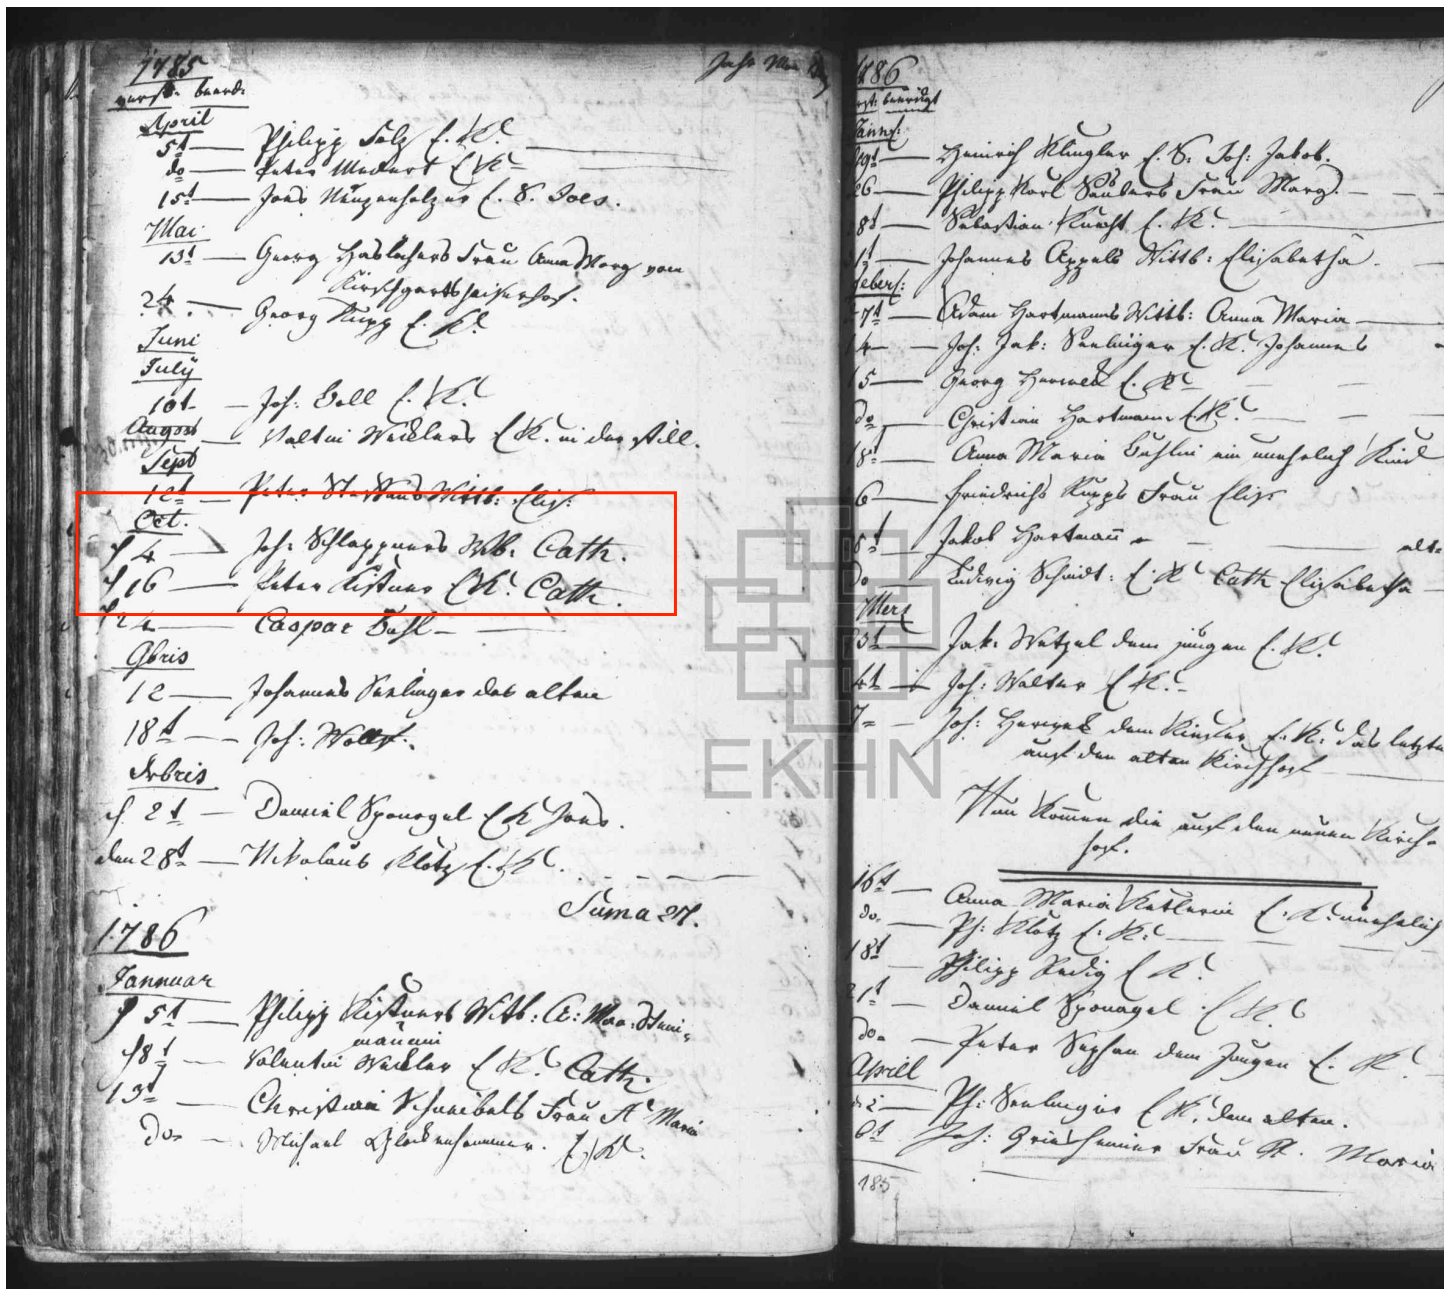 1785
verst: beerd:
Jahr Mon
April
5t — Philipp Folz E. K.
do — Peter Medert E K
15t — Joes E. S. Joes.
Mai
13t — Georg Haslochers Frau Anna Marg von
Kirschgartshaüserhof.
24. — Georg Rupp E. K.
Juni
July
10t — Joh: Boll E. K.
August — Valtin Wecklers E K. in der still.
Sept
12t — Peter Wittb: Elis:
Oct.
d 4 — Joh: Schlappners Wb: Cath.
d 16 — Peter Kistner E K. Cath.
d 24 — Caspar Bohl
9bris
12 — Johannes Seelinger des alten
18t — Joh: Wolff.
Xbris
d. 2t — Daniel Sponagel E K Joes.
den 28t — Nikolaus Klotz E. K.
Suma 27.
1786
Jannuar
d 5t — Philipp Kistners Wittb: A: Mar: Steni-
mannin
d 8t — Valentin Weckler E K. Cath.
13t — Christian Schneibels Frau A Maria
do — Michael Glockenhammer. E K.
1786
verst: beerdigt
Jann:
19t — Heinrich Klingler E. S. Joh: Jakob.
26 — Philipp Karl Sanders Frau Marg.
28t — Sebastian Knecht E. K.
31t — Johannes Appels Wittb: Elisabetha
Febr:
7t — Adam Hartmanns Wittb: Anna Maria
14 — Joh: Jak: Seelinger E. K. Johannes
15 — Georg E. K.
do — Christian Hartmann E K.
18t — Anna Maria Buhlin ein unehelich Kind
6 — Friedrichs Rupps Frau Elis
8t — Jakob Hartmann alt
do — Ludwig Schmidt: E. K Cath Elisabetha
Merz
3t — Jak: Wetzel dem jüngen E. K.
4t — Joh: Walter E K.
7 — Joh: dem E. K. das letzte
auf den alten Kirchhof
Nun kommen die auf den neuen Kirch-
hof.
16t — Anna Maria E. K. unehelich
do — Ph: Klotz E. K.
18t — Philipp Redig E K.
21t — Daniel Sponagel E K.
do — Peter dem Jungen E. K.
Aprill
2 — Ph: Seelinger E K. dem alten.
6t — Joh: Griesheimer Frau A. Maria
185
EKHN